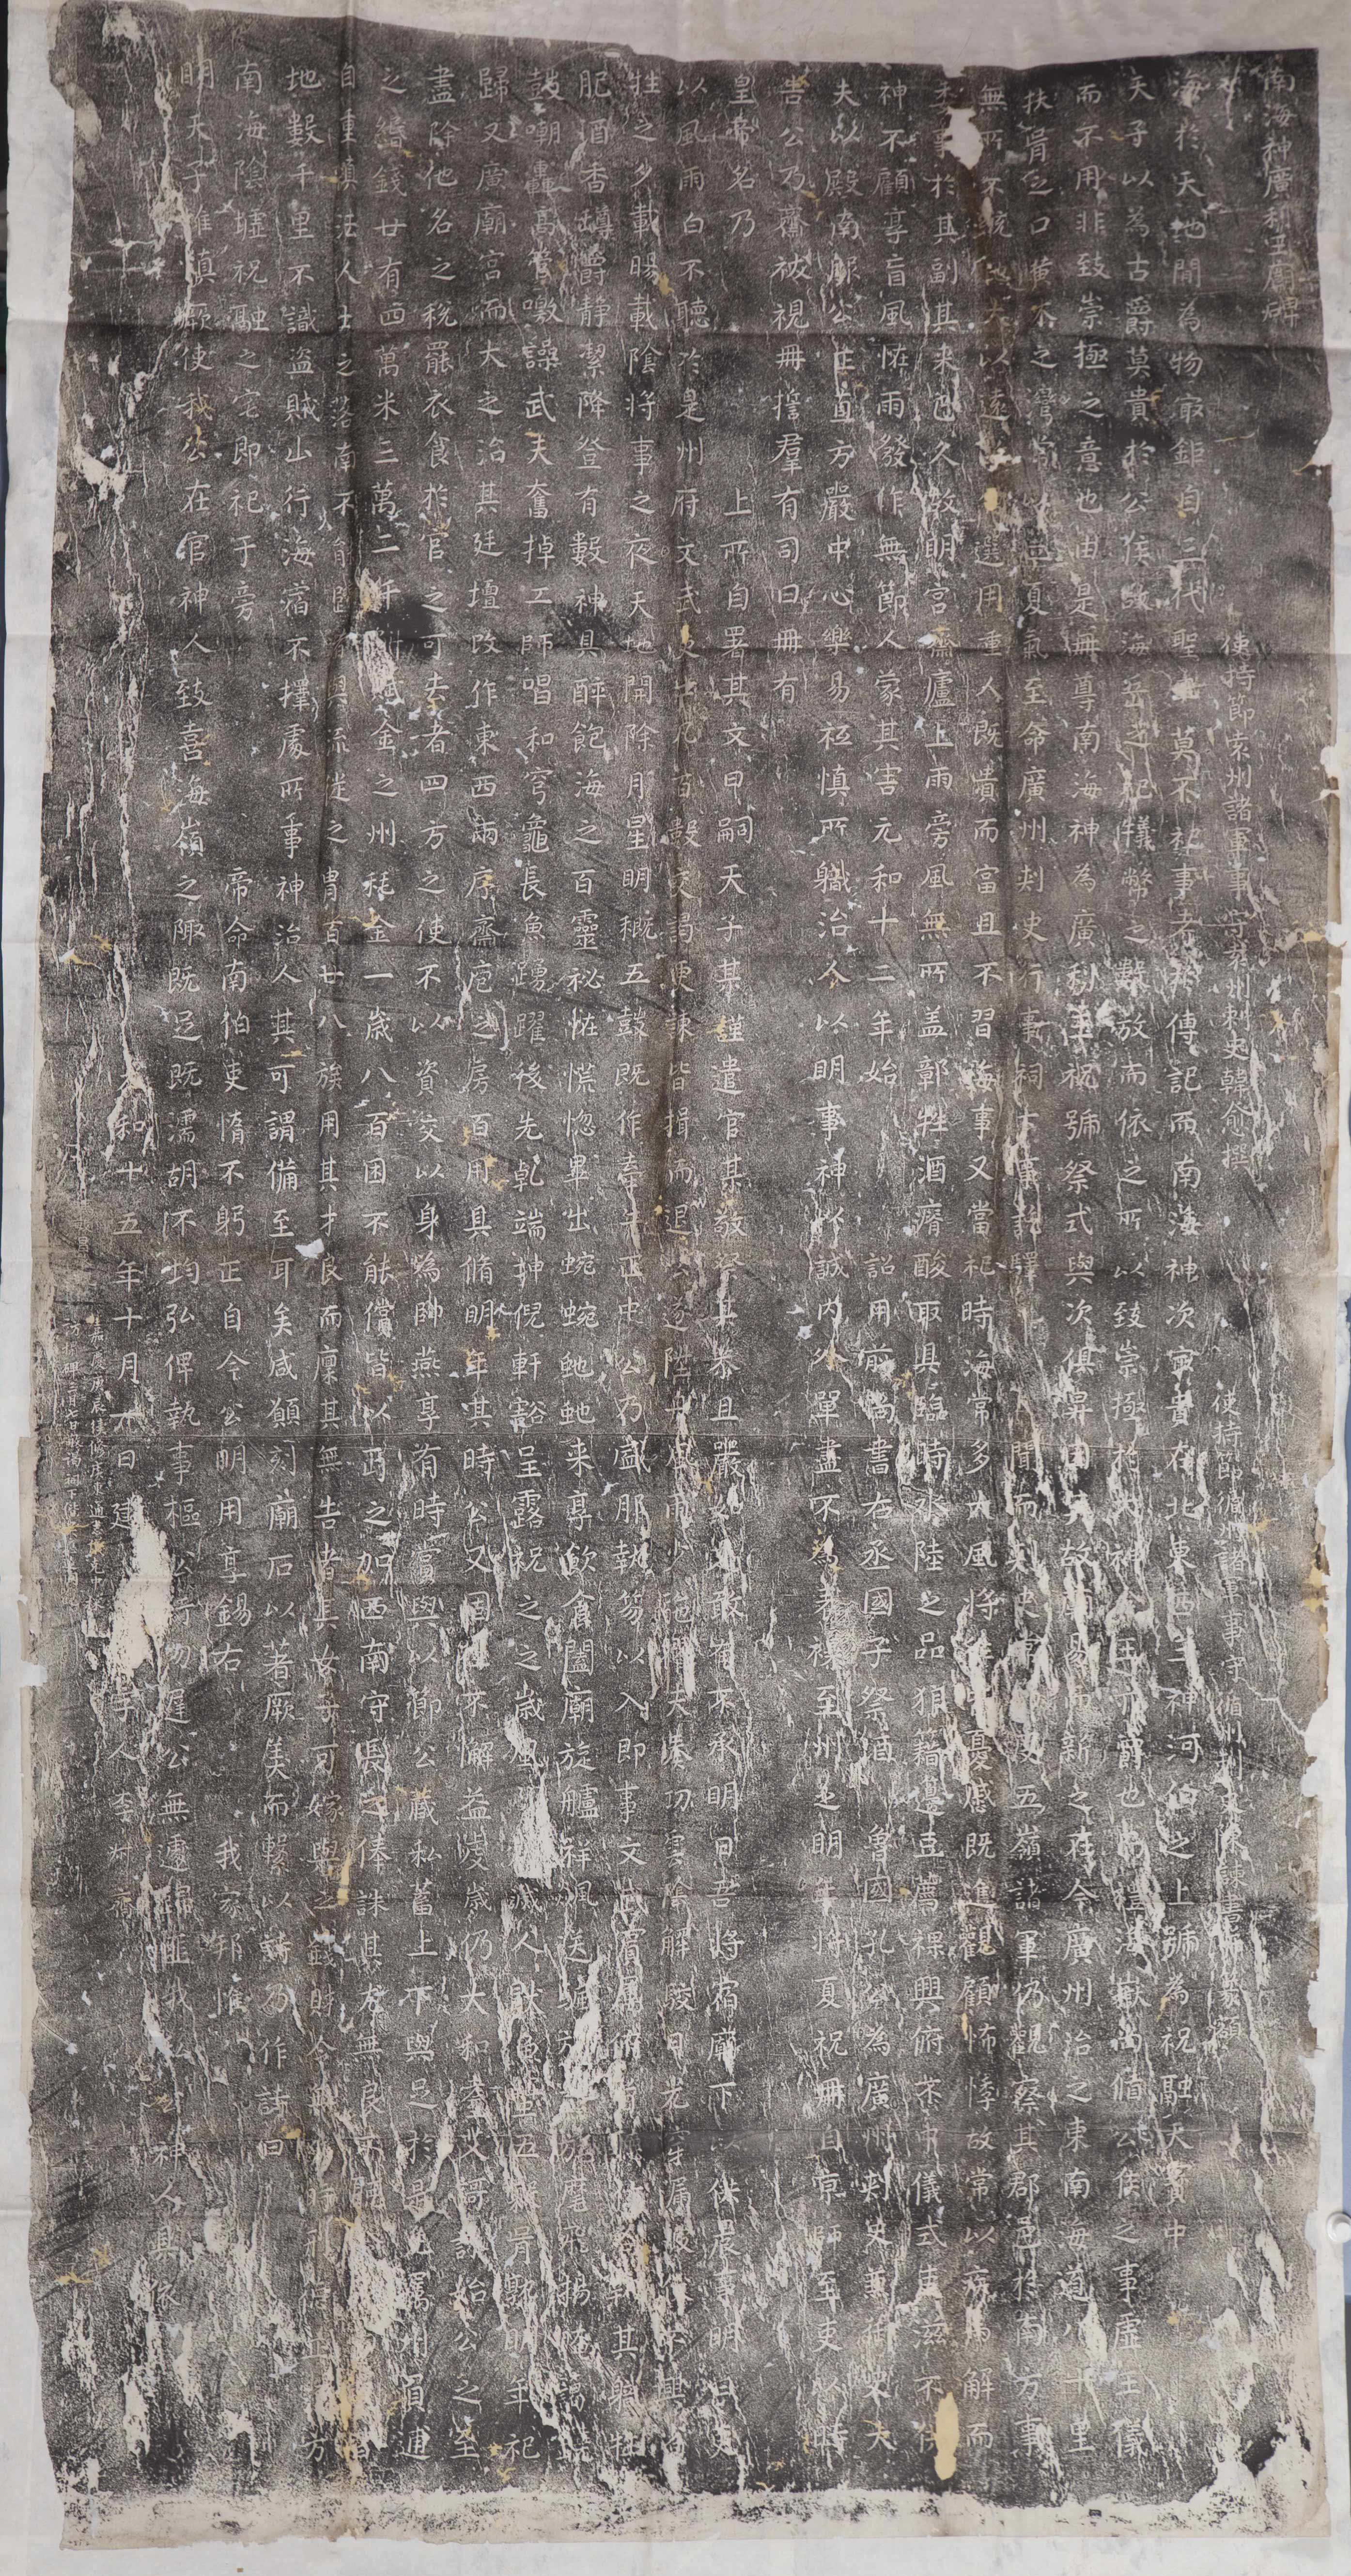 南海神廣利王廟碑
使持節袁州諸軍事守袁州刺史韓愈撰 使持節循州諸軍事守循州刺史陳諫書并篆額
海於天地間為物最鉅自三代聖王莫不祀事考於傳記而南海神次最貴在北東西三神河伯之上號為祝融天寶中
天子以為古爵莫貴於公侯故海岳之祀犧幣之數放而依之所以致崇極於大神今王亦爵也而禮海嶽尚循公侯之事虛王儀
而不用非致崇極之意也由是冊尊南海神為廣利王祝號祭式與次俱昇因其故廟易而新之在今廣州治之東南海道八十里
扶胥之口黃木之灣常以立夏氣至命廣州刺史行事祠下事訖驛聞而刺史常節度五嶺諸軍仍觀察其郡邑於南方事
無所不統地大以遠故常選用重人既貴而富且不習海事又當祀時海常多大風將往皆憂慼既進觀顧怖悸故常以疾為解而
委事於其副其来已久故明宮齋廬上雨旁風無所盖鄣牲酒瘠酸取具臨時水陸之品狼籍籩豆薦祼興俯不中儀式吏滋不供
神不顧享盲風怪雨發作無節人蒙其害元和十二年始 詔用前尚書右丞國子祭酒 魯國孔公為廣州刺史兼御史大
夫以殿南服公正直方嚴中心樂易祗慎所職治人以明事神以誠內外單盡不為表襮至州之明年將夏祝冊自京師至吏以時
告公乃齋祓視冊誓羣有司曰冊有
皇帝名乃 上所自署其文曰嗣天子某謹遣官某敬祭其恭且嚴如是敢有不承明日吾將宿廟下以供晨事明日吏
以風雨白不聽於是州府文武吏士凡百數交謁更諫皆揖而退公遂陞舟風雨少弛櫂夫奏功雲陰解駮日光穿漏波伏不興省
牲之夕載暘載陰將事之夜天地開除月星明概五鼓既作牽牛正中公乃盛服執笏以入即事文武賓屬俯首聽位各執其職牲
肥酒香罇爵静潔降登有數神具醉飽海之百靈祕怪慌惚畢出蜿蜿虵虵来享飲食闔廟旋艫祥飈送颿旗纛旄麾飛揚晻藹鐃
鼓嘲轟高管噭譟武夫奮掉工師唱和穹龜長魚踴躍後先乹端坤倪軒豁呈露祀之之歲風災熄滅人猒魚蟹五穀胥熟明年祀
歸又廣廟宮而大之治其廷壇改作東西兩序齋庖之房百用具脩明年其時公又固往不懈益虔歲仍大和耋艾謌詠始公之至
盡除他名之稅罷衣食於官之可去者四方之使不以資交以身為帥燕享有時賞與以節公藏私蓄上下與足於是免屬州負逋
之緡錢廿有四萬米三萬二千斛賦金之州耗金一歲八百困不能償皆以丐之加西南守長之俸誅其尤無良不聽令者由是皆
自重慎法人士之落南不能歸者與流徙之胄百廿八族用其才良而廩其無告者其女子可嫁與之錢財令無失時刑德並流方
地數千里不識盜賊山行海宿不擇處所事神治人其可謂備至耳矣咸願刻廟石以著厥美而繫以詩乃作詩曰
南海陰墟祝融之宅即祀于旁 帝命南伯吏惰不躬正自今公明用享錫右 我家邦惟
明天子惟慎厥使我公在官神人致喜海嶺之陬既足既濡胡不均弘俾執事樞公行勿遲公無遽歸匪我私公神人具依
元和十五年十月一日建 字人李叔齊